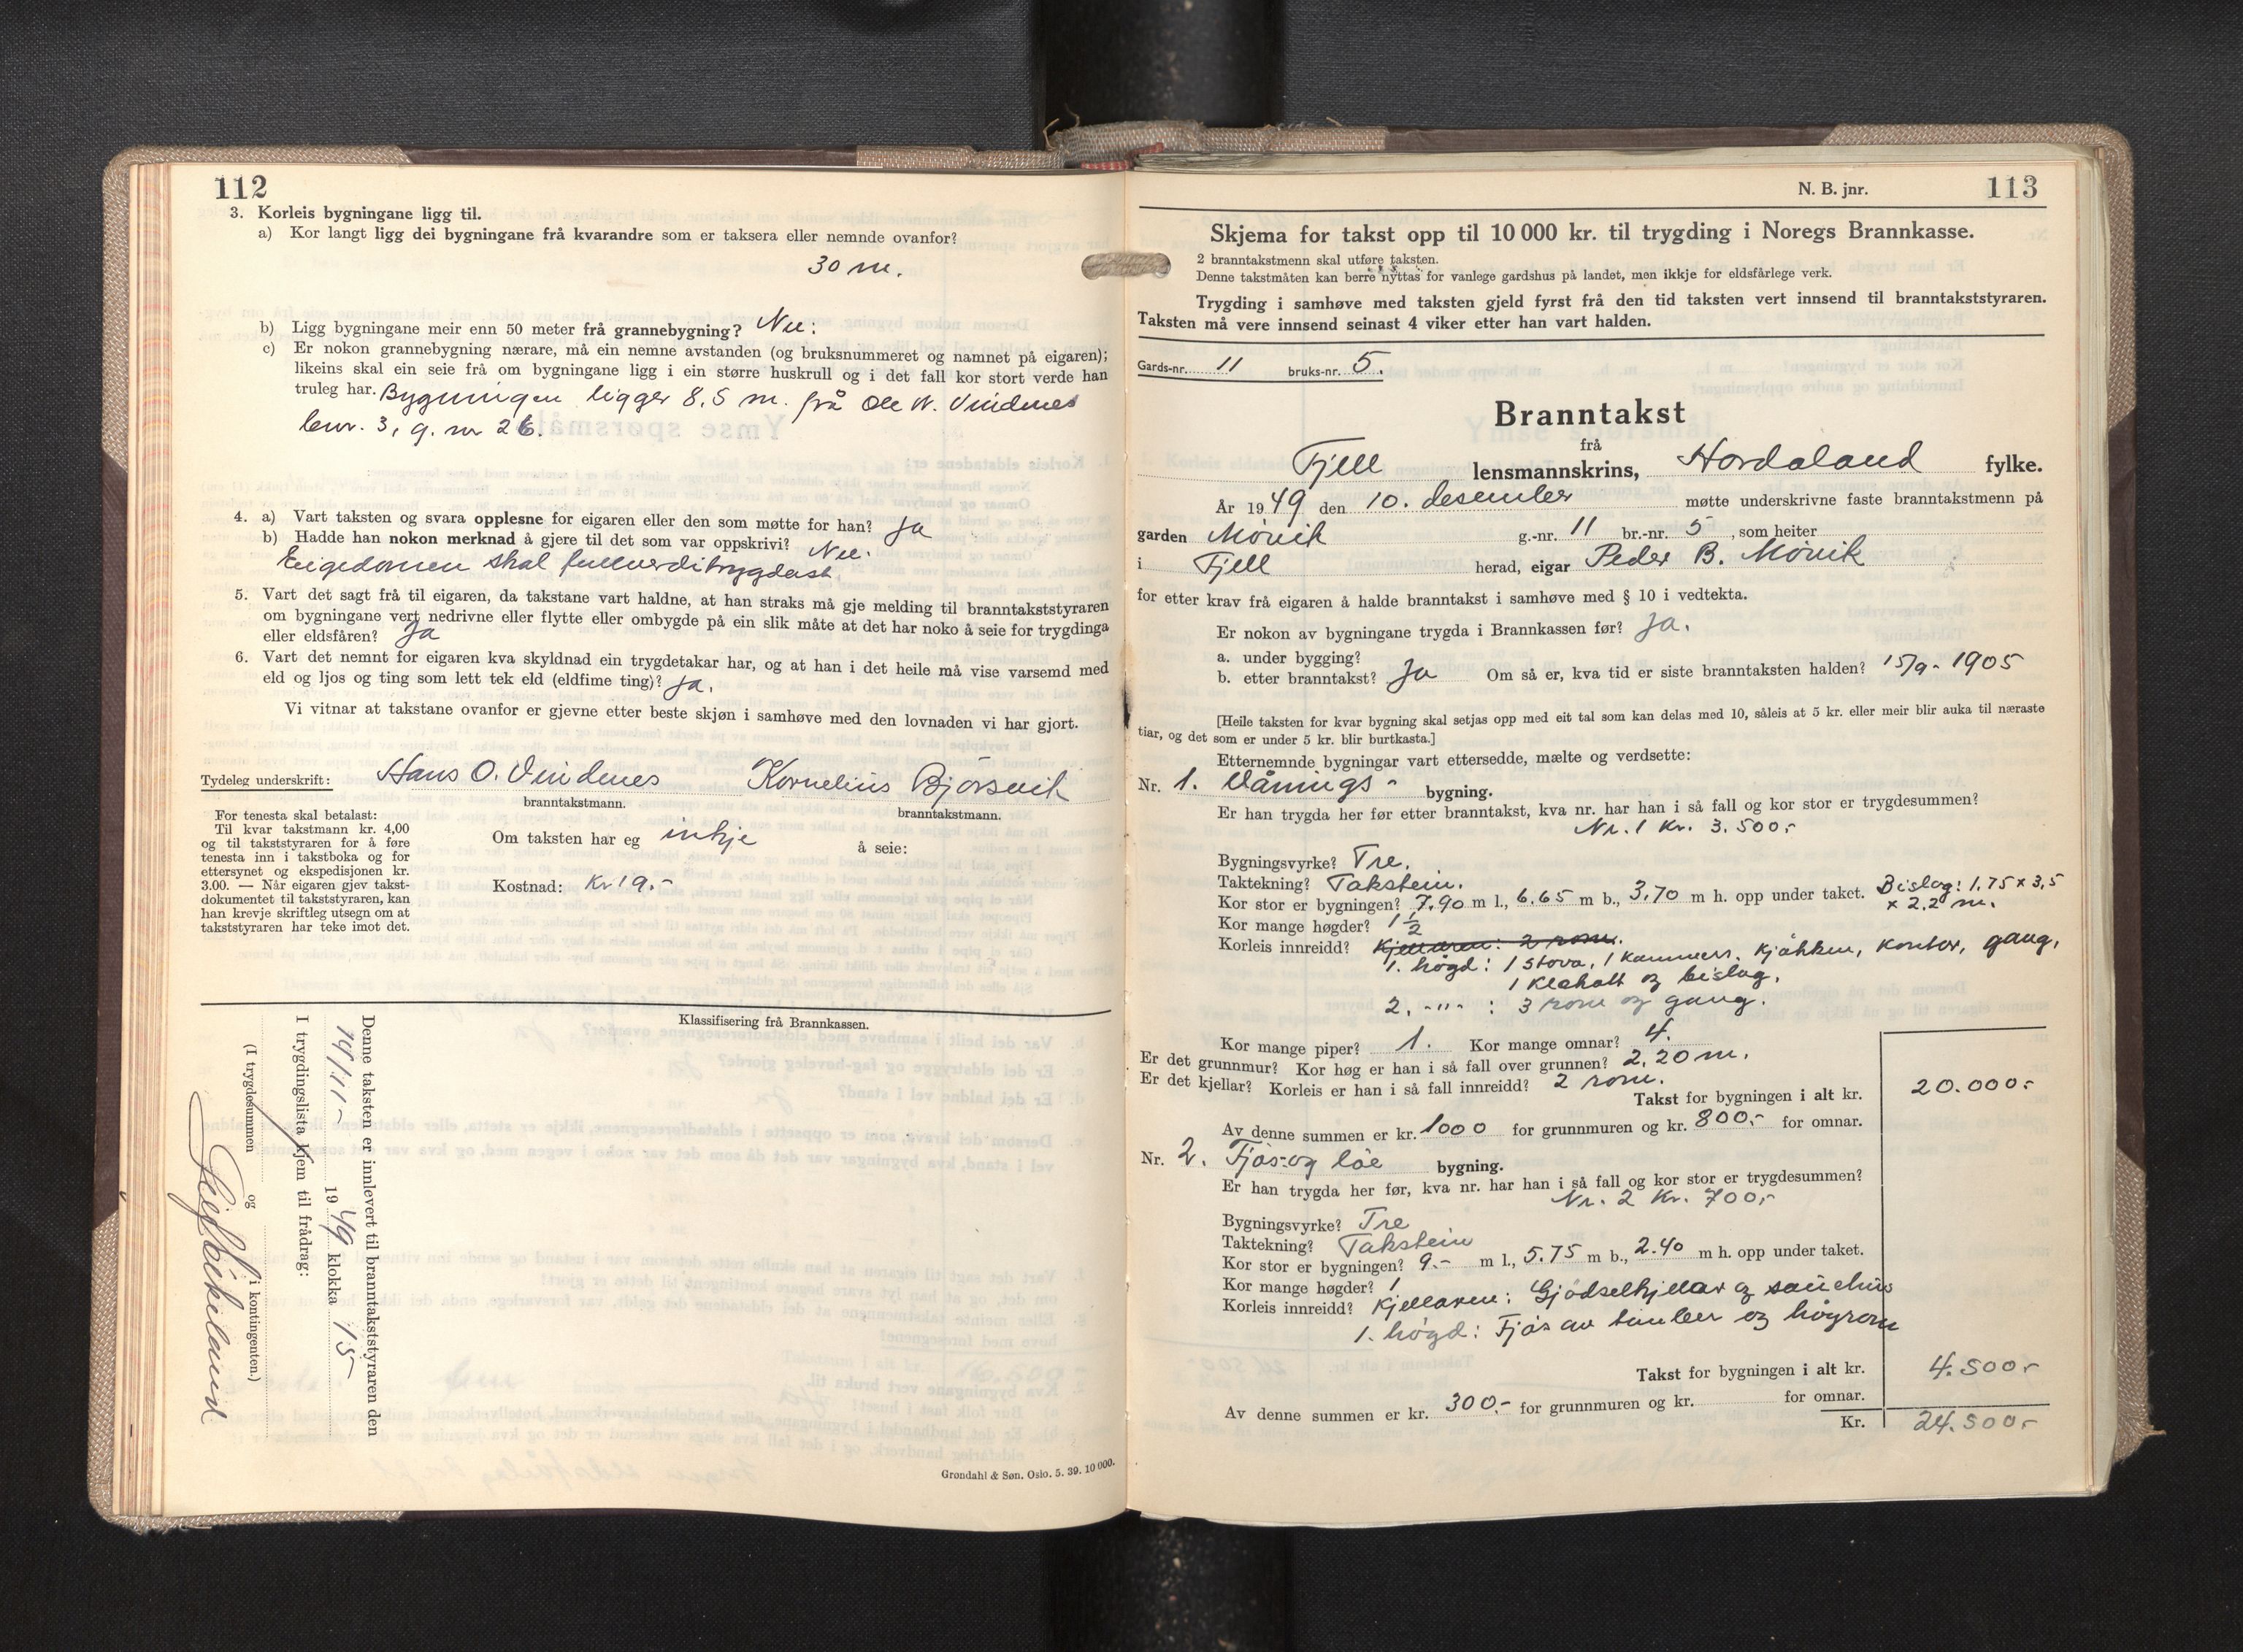 112
3. Korleis bygningane ligg til.
a) Kor langt ligg dei bygningane frå kvarandre som er taksera eller nemnde ovanfor?
30 m.
b) Ligg bygningane meir enn 50 meter frå grannebygning? Nei.
c) Er nokon grannebygning nærare, må ein nemne avstanden (og bruksnummeret og namnet på eigaren);
likeins skal ein seie frå om bygningane ligg i ein større huskrull og i det fall kor stort verde han
truleg har. Bygningen ligger 8,5 m. frå Ole N. Vindenes
bnr. 3, g. nr 26.
4. a) Vart taksten og svara opplesne for eigaren eller den som møtte for han? Ja
b) Hadde han nokon merknad å gjere til det som var oppskrivi? Nei.
Eigedomen skal fullverditrygdast
5. Vart det sagt frå til eigaren, da takstane vart haldne, at han straks må gje melding til branntakststyraren
om bygningane vert nedrivne eller flytte eller ombygde på ein slik måte at det har noko å seie for trygdinga
eller eldsfåren? Ja
6. Vart det nemnt for eigaren kva skyldnad ein trygdetakar har, og at han i det heile må vise varsemd med
eld og ljos og ting som lett tek eld (eldfime ting)? Ja.
Vi vitnar at takstane ovanfor er gjevne etter beste skjøn i samhøve med den lovnaden vi har gjort.
Tydeleg underskrift: Hans O. Vindenes Kornelius Bjørsvik
branntakstmann. branntakstmann.
For tenesta skal betalast:
Til kvar takstmann kr. 4,00
og til takststyraren for å føre
tenesta inn i takstboka og for
ettersynet og ekspedisjonen kr.
3.00. — Når eigaren gjev takst-
dokumentet til takststyraren, kan
han krevje skriftleg utsegn om at
takststyraren har teke imot det.
Om taksten har eg inkje å seie:
Kostnad: Kr 19.-
Klassifisering frå Brannkassen.
Denne taksten er innlevert til branntakststyraren den
14/11- 1949 klokka 15
I trygdingslista kjem til frådrag:
(I trygdesummen og i kontingenten.)
Grøndahl & Søn. Oslo. 5. 39. 10 000.
N. B. jnr. 113
Skjema for takst opp til 10 000 kr. til trygding i Noregs Brannkasse.
2 branntakstmenn skal utføre taksten.
Denne takstmåten kan berre nyttas for vanlege gardshus på landet, men ikkje for eldsfårlege verk.
Trygding i samhøve med taksten gjeld fyrst frå den tid taksten vert innsend til branntakststyraren.
Taksten må vere innsend seinast 4 viker etter han vart halden.
Gards-nr. 11 bruks-nr. 5.
Branntakst
frå
Fjell lensmannskrins, Hordaland fylke.
År 1949 den 10. desember møtte underskrivne faste branntakstmenn på
garden Møvik g.-nr. 11 br.-nr. 5, som heiter
i Fjell herad, eigar Peder B. Møvik
for etter krav frå eigaren å halde branntakst i samhøve med § 10 i vedtekta.
Er nokon av bygningane trygda i Brannkassen før? Ja.
a. under bygging?
b. etter branntakst? Ja Om så er, kva tid er siste branntaksten halden? 15/9- 1905
[Heile taksten for kvar bygning skal setjas opp med eit tal som kan delas med 10, såleis at 5 kr. eller meir blir auka til næraste
tiar, og det som er under 5 kr. blir burtkasta.]
Etternemnde bygningar vart ettersedde, mælte og verdsette:
Nr. 1. Vånings- bygning.
Er han trygda her før etter branntakst, kva nr. har han i så fall og kor stor er trygdesummen?
Nr. 1 Kr. 3.500,-
Bygningsvyrke? Tre.
Taktekning? Takstein.
Kor stor er bygningen? 7.90 m l., 6.65 m b., 3,70 m h. opp under taket. Bislag: 1,75 x 3,5
x 2.2 m.
Kor mange høgder? 1 1/2
Korleis innreidd? Kjellaren: 2 rom.
1. høgd: 1 stova, 1 kammers, kjøkken, kontor, gang,
1 klekott og bislag.
2. -"- : 3 rom og gang.
Kor mange piper? 1. Kor mange omnar? 4.
Er det grunnmur? Kor høg er han i så fall over grunnen? 2,20 m.
Er det kjellar? Korleis er han i så fall innreidd? 2 rom.
Takst for bygningen i alt kr. 20.000,-
Av denne summen er kr. 1000 for grunnmuren og kr. 800,- for omnar.
Nr. 2. Fjøs og løe bygning.
Er han trygda her før, kva nr. har han i så fall og kor stor er trygdesummen?
Nr. 2 Kr. 700,-
Bygningsvyrke? Tre
Taktekning? Takstein
Kor stor er bygningen? 9.- m l., 5.75 m b., 2.40 m h. opp under taket.
Kor mange høgder? 1
Korleis innreidd? Kjellaren: Gjødselkjellar og sauehus
1. høgd: Fjøs av tømber og høyrom
Takst for bygningen i alt kr. 4.500,-
Av denne summen er kr. 300,- for grunnmuren og kr. for omnar.
Kr. 24.500,-